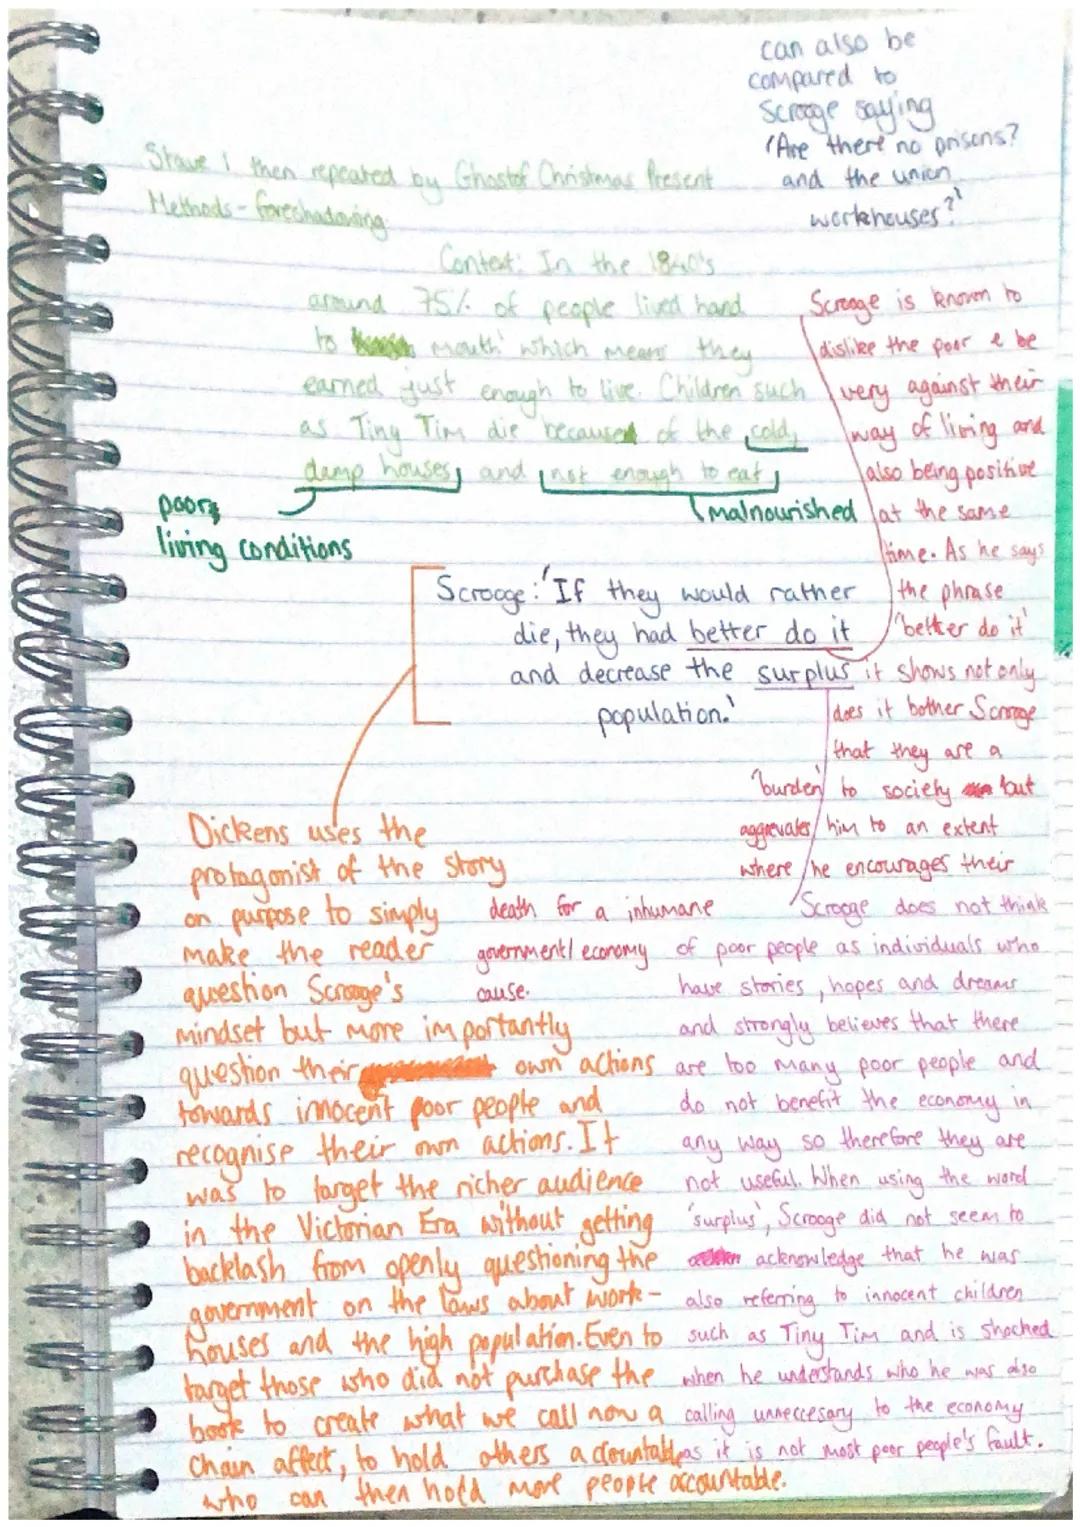 can also be
compared to
Scrooge saying
'Are there no prisons?
and the union
workhouses?'
Stave 1 then repeated by Ghost of Christmas Present
Methods - foreshadowing
Context: In the 1840's
around 75% of people lived hand
to mouth' which means they
earned just enough to live. Children such
as Tiny Tim die because of the cold,
damp houses, and not enough to eat
poor
living conditions
malnourished
Scrooge: 'If they would rather
die, they had better do it
and decrease the surplus
population.'
Scrooge is known to
dislike the poor & be
very against their
way of living and
also being positive
at the same
time. As he says
the phrase
'better do it'
it shows not only
does it bother Scrooge
that they are a
'burden' to society but
aggrevates him to an extent
where he encourages their
death for a inhumane
government/economy
cause.
Dickens uses the
protagonist of the story
on purpose to simply
make the reader
question Scrooge's
mindset but more importantly
question their own actions
towards innocent poor people and
recognise their own actions. It
was to target the richer audience
in the Victorian Era without getting
backlash from openly questioning the
government on the laws about work-
houses and the high population. Even to
target those who did not purchase the
book to create what we call now a
chain affect, to hold others acountable
who can then hold more people accountable.
Scrooge does not think
of poor people as individuals who
have stories, hopes and dreams
and strongly believes that there
are too many poor people and
do not benefit the economy in
any way so therefore they are
not useful. When using the word
'surplus', Scrooge did not seem to
acknowledge that he was
also referring to innocent children
such as Tiny Tim and is shocked
when he understands who he was also
calling unneccesary to the economy
as it is not most poor people's fault.